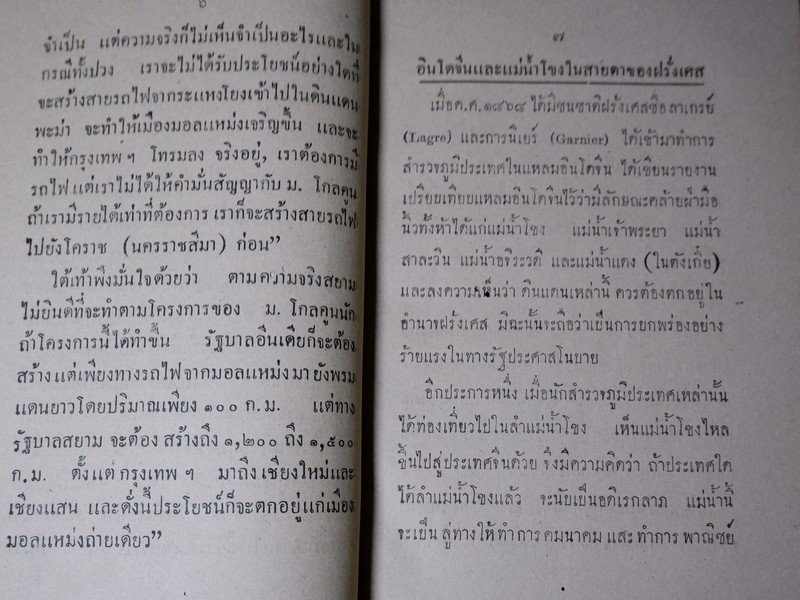 ๖
จำเป็น แต่ความจริงก็ไม่เห็นจำเป็นอะไรและใน
กรณีทั้งปวง เราจะไม่ได้รับประโยชน์อย่างใดที่
จะสร้างสายรถไฟจากระแหงโยงเข้าไปในดินแดน
พะม่า จะทำให้เมืองมอลแหม่งเจริญขึ้น และจะ
ทำให้กรุงเทพฯ โทรมลง จริงอยู่, เราต้องการมี
รถไฟ แต่เราไม่ได้ให้คำมั่นสัญญากับ ม. โกลคูน
ถ้าเรามีรายได้เท่าที่ต้องการ เราก็จะสร้างสายรถไฟ
ไปยังโคราช (นครราชสีมา) ก่อน”
ใต้เท้าพึงมั่นใจด้วยว่า ตามความจริงสยาม
ไม่ยินดีที่จะทำตามโครงการของ ม. โกลคูนนัก
ถ้าโครงการนี้ได้ทำขึ้น รัฐบาลอินเดียก็จะต้อง
สร้างแต่เพียงทางรถไฟจากมอลแหม่งมายังพรม
แดนยาวโดยปริมาณเพียง ๑๐๐ ก.ม. แต่ทาง
รัฐบาลสยาม จะต้อง สร้างถึง ๑,๒๐๐ ถึง ๑,๕๐๐
ก.ม. ตั้งแต่ กรุงเทพ ฯ มาถึง เชียงใหม่และ
เชียงแสน และดั่งนี้ประโยชน์ก็จะตกอยู่แก่เมือง
มอลแหม่งถ่ายเดียว”
๗
อินโดจีนและแม่น้ำโขงในสายตาของฝรั่งเศส
เมื่อค.ศ. ๑๘๖๘ ได้มีชนชาติฝรั่งเศสชื่อ ลาเกรย์
(Lagre) และการนิเยร์ (Garnier) ได้เข้ามาทำการ
สำรวจภูมิประเทศในแหลมอินโดจีน ได้เขียนรายงาน
เปรียบเทียบแหลมอินโดจีนไว้ว่ามีลักษณะคล้ายฝ่ามือ
นิ้วทั้งห้าได้แก่แม่น้ำโขง แม่น้ำเจ้าพระยา แม่น้ำ
สาละวิน แม่น้ำอิระวดี และแม่น้ำแดง (ในตังเกี๋ย)
และลงความเห็นว่า ดินแดนเหล่านี้ ควรต้องตกอยู่ใน
อำนาจฝรั่งเศส มิฉะนั้นจะถือว่าเป็นการยกพร่องอย่าง
ร้ายแรงในทางรัฐประศาสโนบาย
อีกประการหนึ่ง เมื่อนักสำรวจภูมิประเทศเหล่านั้น
ได้ท่องเที่ยวไปในลำแม่น้ำโขง เห็นแม่น้ำโขงไหล
ขึ้นไปสู่ประเทศจีนด้วย จึงมีความคิดว่า ถ้าประเทศใด
ได้ลำแม่น้ำโขงแล้ว จะนับเป็นอดิเรกลาภ แม่น้ำนี้
จะเป็น ลู่ทางให้ ทำ การ คมนาคม และ ทำการ พาณิชย์